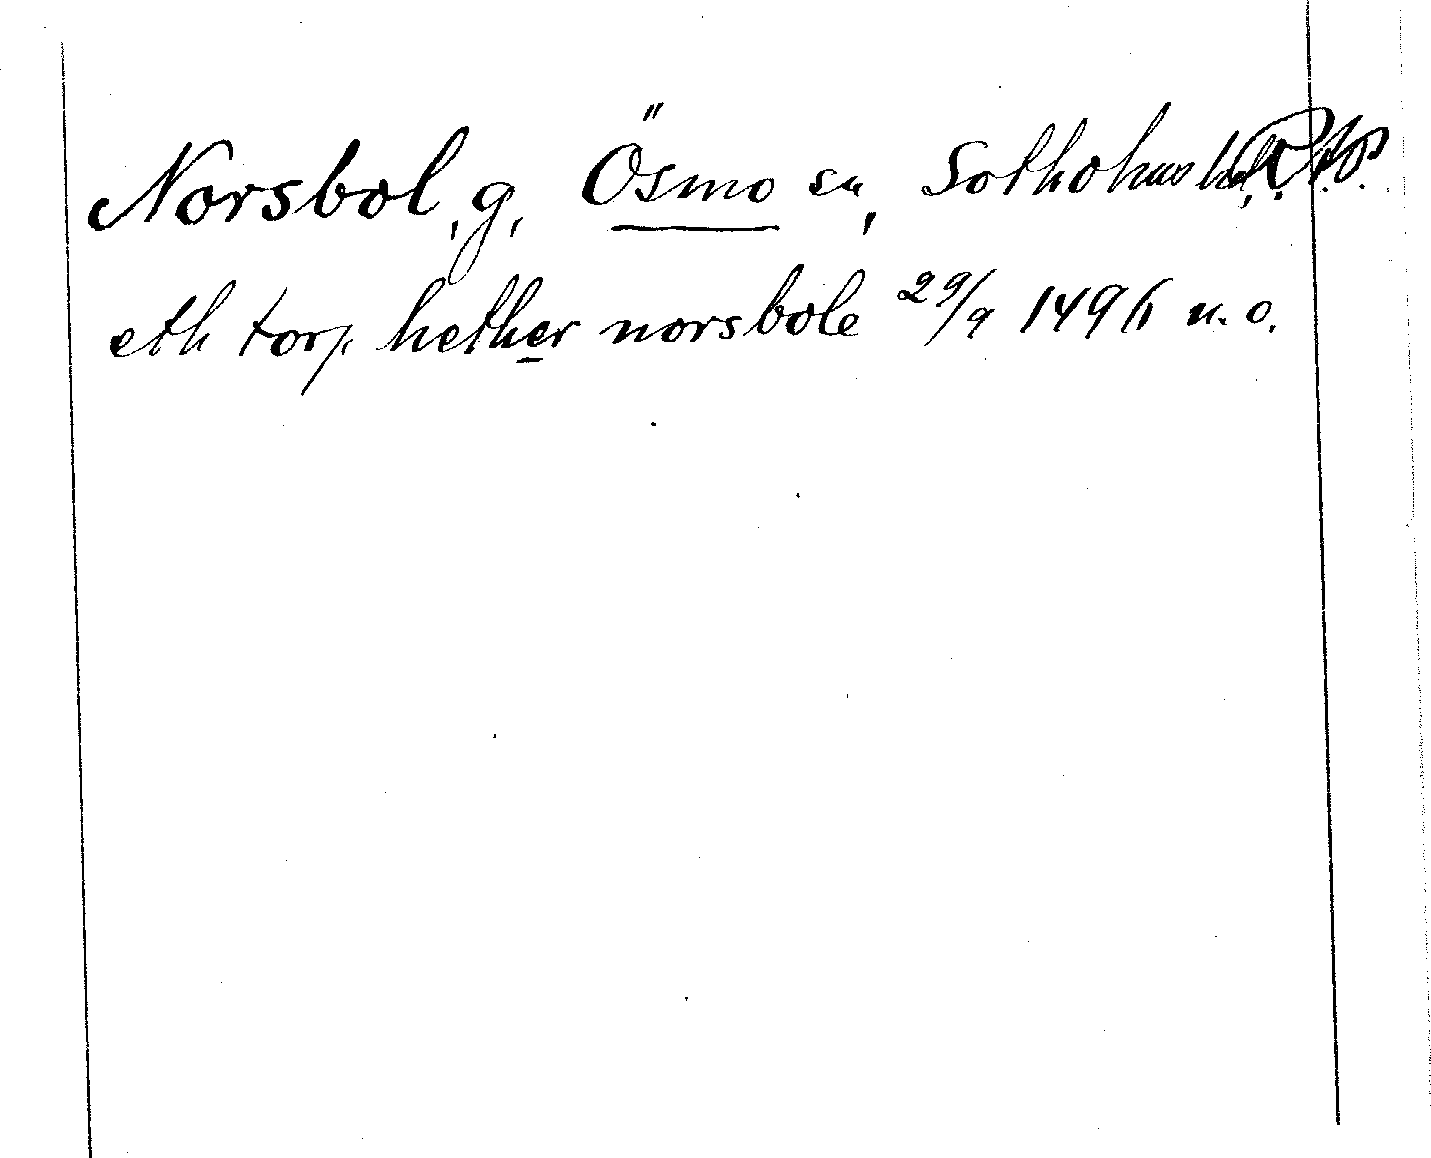 Norsbol, g, Ösmo sn, Sotholms hd,
eth torp hether norsbole 29/9 1496 u. o.